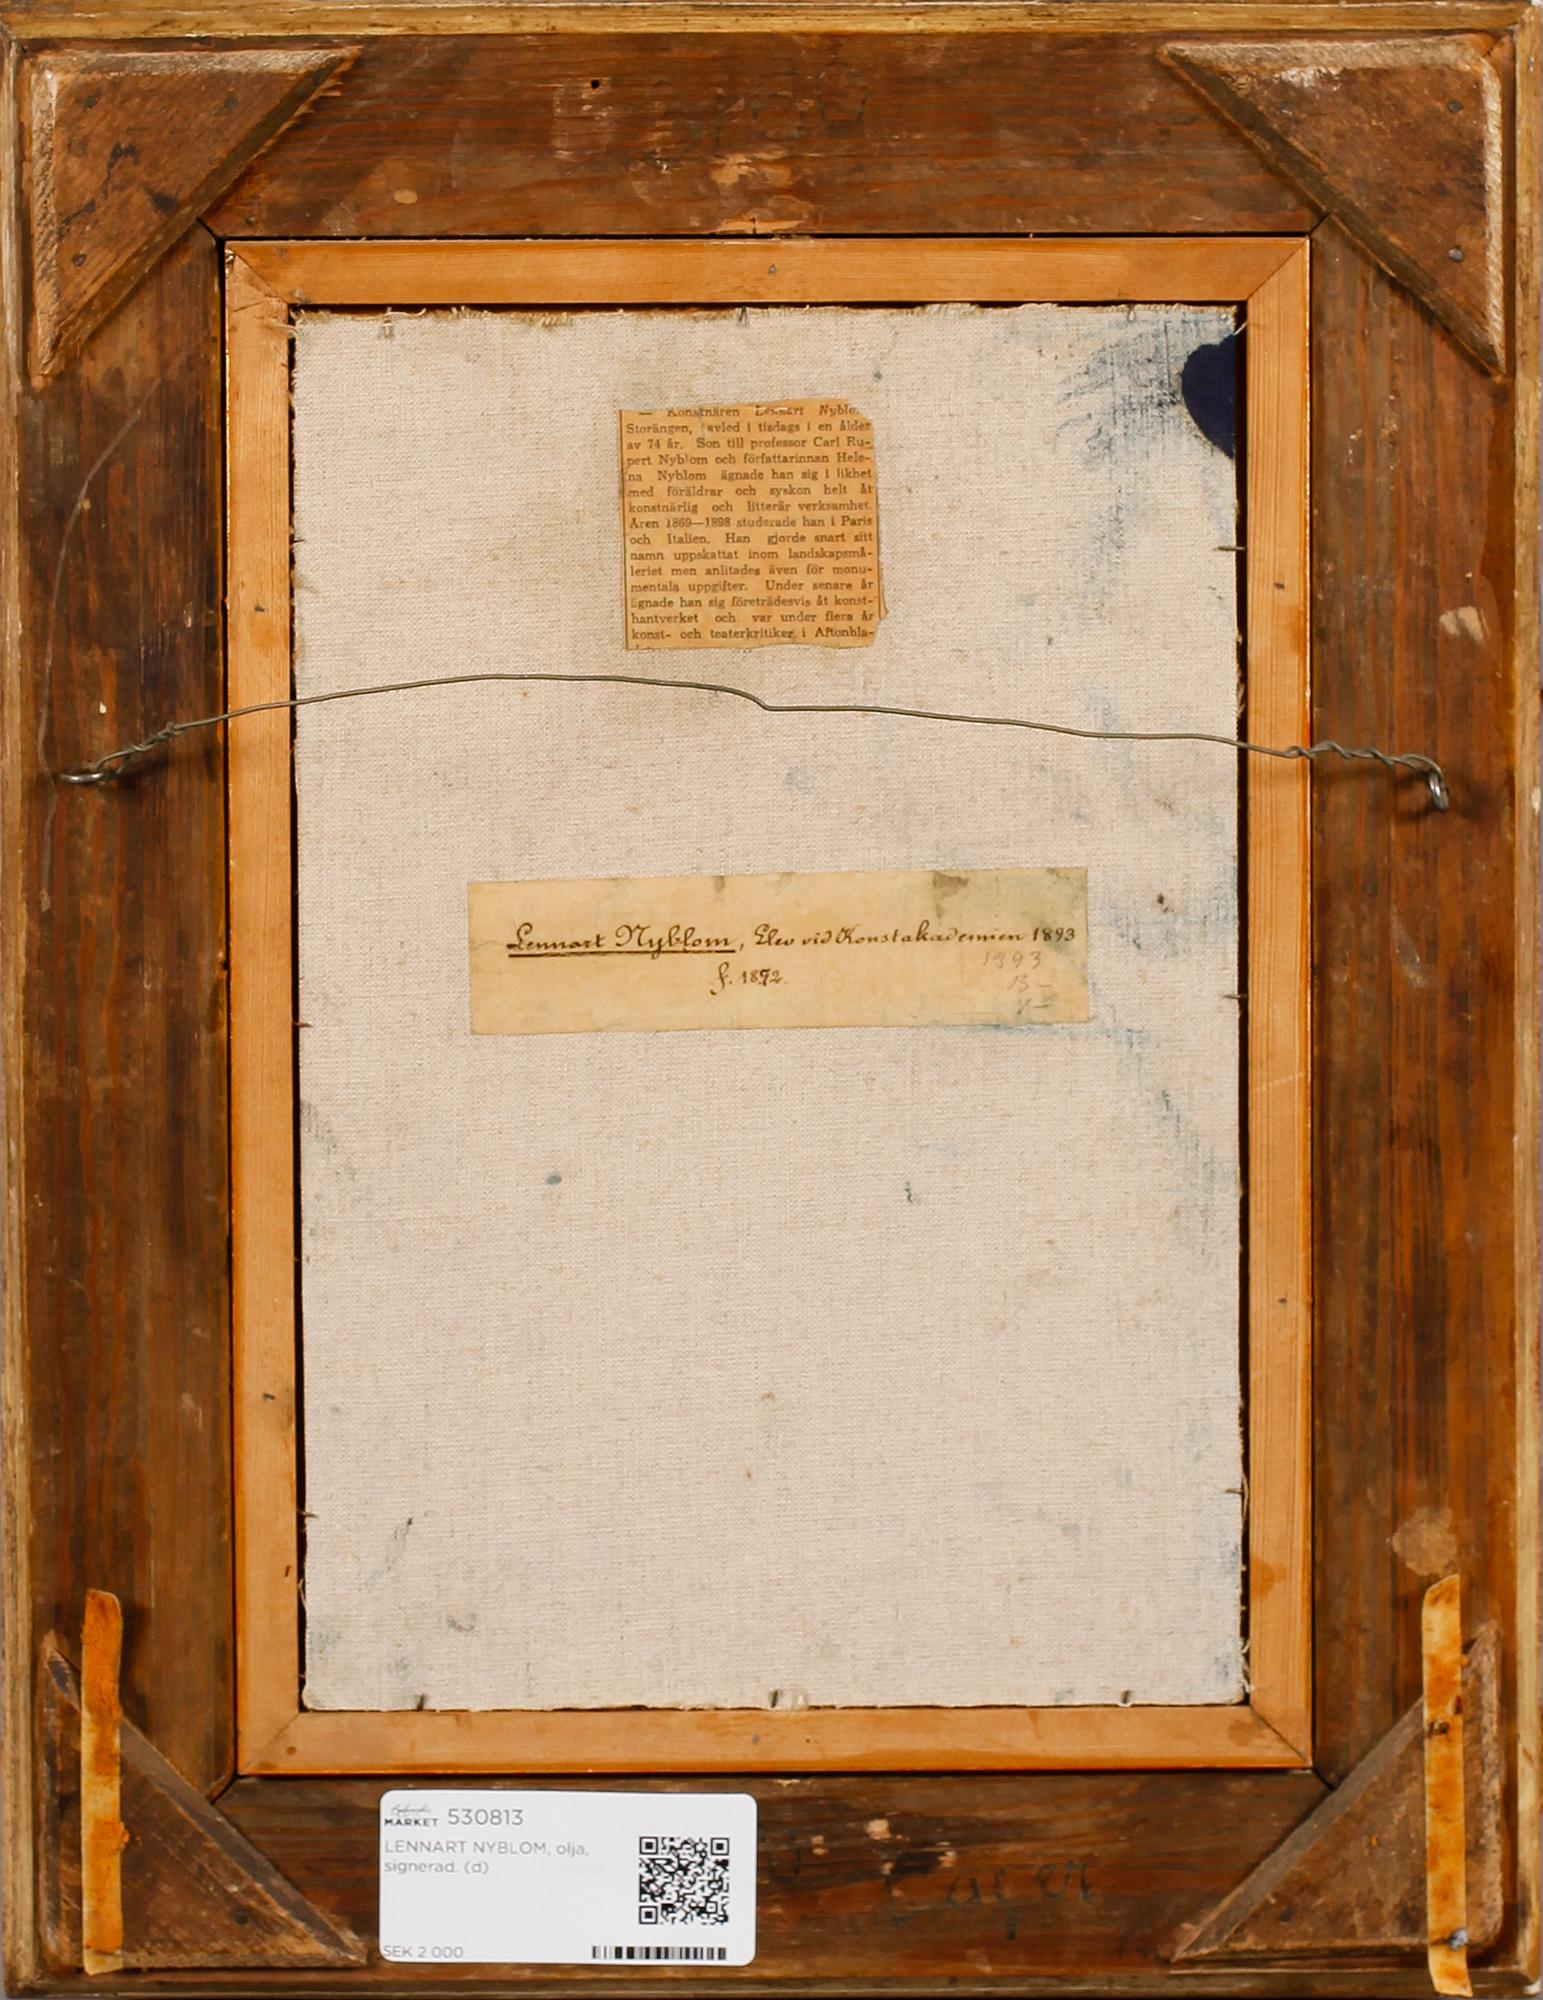 — Konstnären Lennart Nyblo.
Storängen, avled i tisdags i en ålder
av 74 år. Son till professor Carl Ru-
pert Nyblom och författarinnan Hele-
na Nyblom ägnade han sig i likhet
med föräldrar och syskon helt åt
konstnärlig och litterär verksamhet.
Åren 1869—1898 studerade han i Paris
och Italien. Han gjorde snart sitt
namn uppskattat inom landskapsmå-
leriet men anlitades även för monu-
mentala uppgifter. Under senare år
ägnade han sig företrädesvis åt konst-
hantverket och var under flera år
konst- och teaterkritiker i Aftonbla-
Lennart Nyblom, Elev vid Konstakademien 1893
f. 1872.
1393
B-
MARKET 530813
LENNART NYBLOM, olja,
signerad. (d)
SEK 2 000